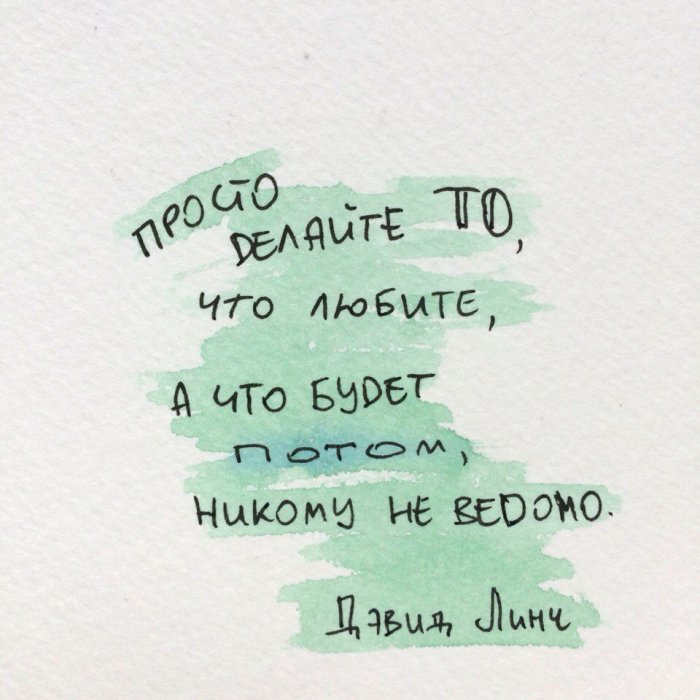 ПРОСТО
ДЕЛАЙТЕ ТО,
ЧТО ЛЮБИТЕ,
А ЧТО БУДЕТ
ПОТОМ,
НИКОМУ НЕ ВЕДОМО.
Дэвид Линч